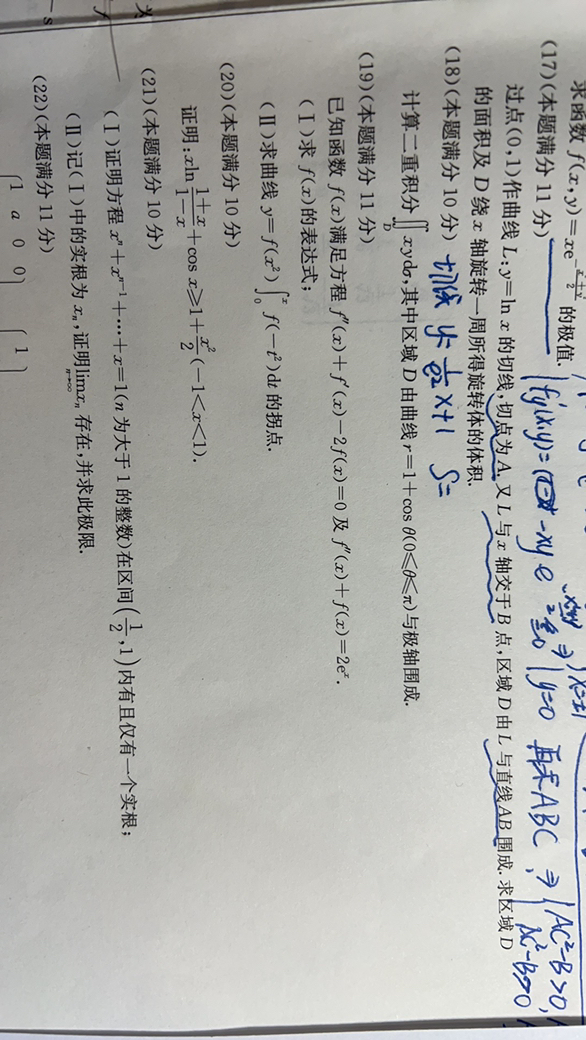 求函数 f(x,y)=xe^{-\frac{x^2+y^2}{2}} 的极值.
(17)(本题满分 11 分)
过点(0,1)作曲线 L:y=ln x 的切线,切点为 A,又 L 与 x 轴交于 B 点,区域 D 由 L 与直线 AB 围成.求区域 D
的面积及 D 绕 x 轴旋转一周所得旋转体的体积.
(18)(本题满分 10 分) 切线 y=\frac{1}{e^2}x+1 S=
计算二重积分 \iint_D xydσ,其中区域 D 由曲线 r=1+cos θ(0≤θ≤π)与极轴围成.
(19)(本题满分 11 分)
已知函数 f(x)满足方程 f″(x)+f′(x)-2f(x)=0 及 f″(x)+f(x)=2e^x.
(Ⅰ)求 f(x)的表达式;
(Ⅱ)求曲线 y=f(x^2)\int_0^x f(-t^2)dt 的拐点.
(20)(本题满分 10 分)
证明:xln\frac{1+x}{1-x}+cos x≥1+\frac{x^2}{2}(-1<x<1).
(21)(本题满分 10 分)
(Ⅰ)证明方程 x^n+x^{n-1}+…+x=1(n 为大于 1 的整数)在区间(\frac{1}{2},1)内有且仅有一个实根;
(Ⅱ)记(Ⅰ)中的实根为 x_n,证明\lim_{n→∞}x_n 存在,并求此极限.
(22)(本题满分 11 分)
1 a 0 0 1